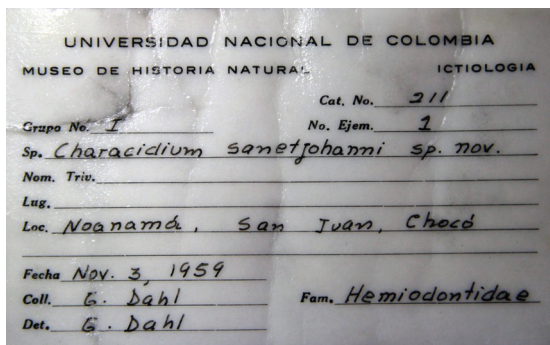 UNIVERSIDAD NACIONAL DE COLOMBIA
MUSEO DE HISTORIA NATURAL ICTIOLOGIA
Cat. No. 211
Grupo No. I No. Ejem. 1
Sp. Characidium sanctjohanni sp. nov.
Nom. Triv.
Lug.
Loc. Noanamá, San Juan, Chocó
Fecha Nov. 3, 1959
Coll. G. Dahl Fam. Hemiodontidae
Det. G. Dahl